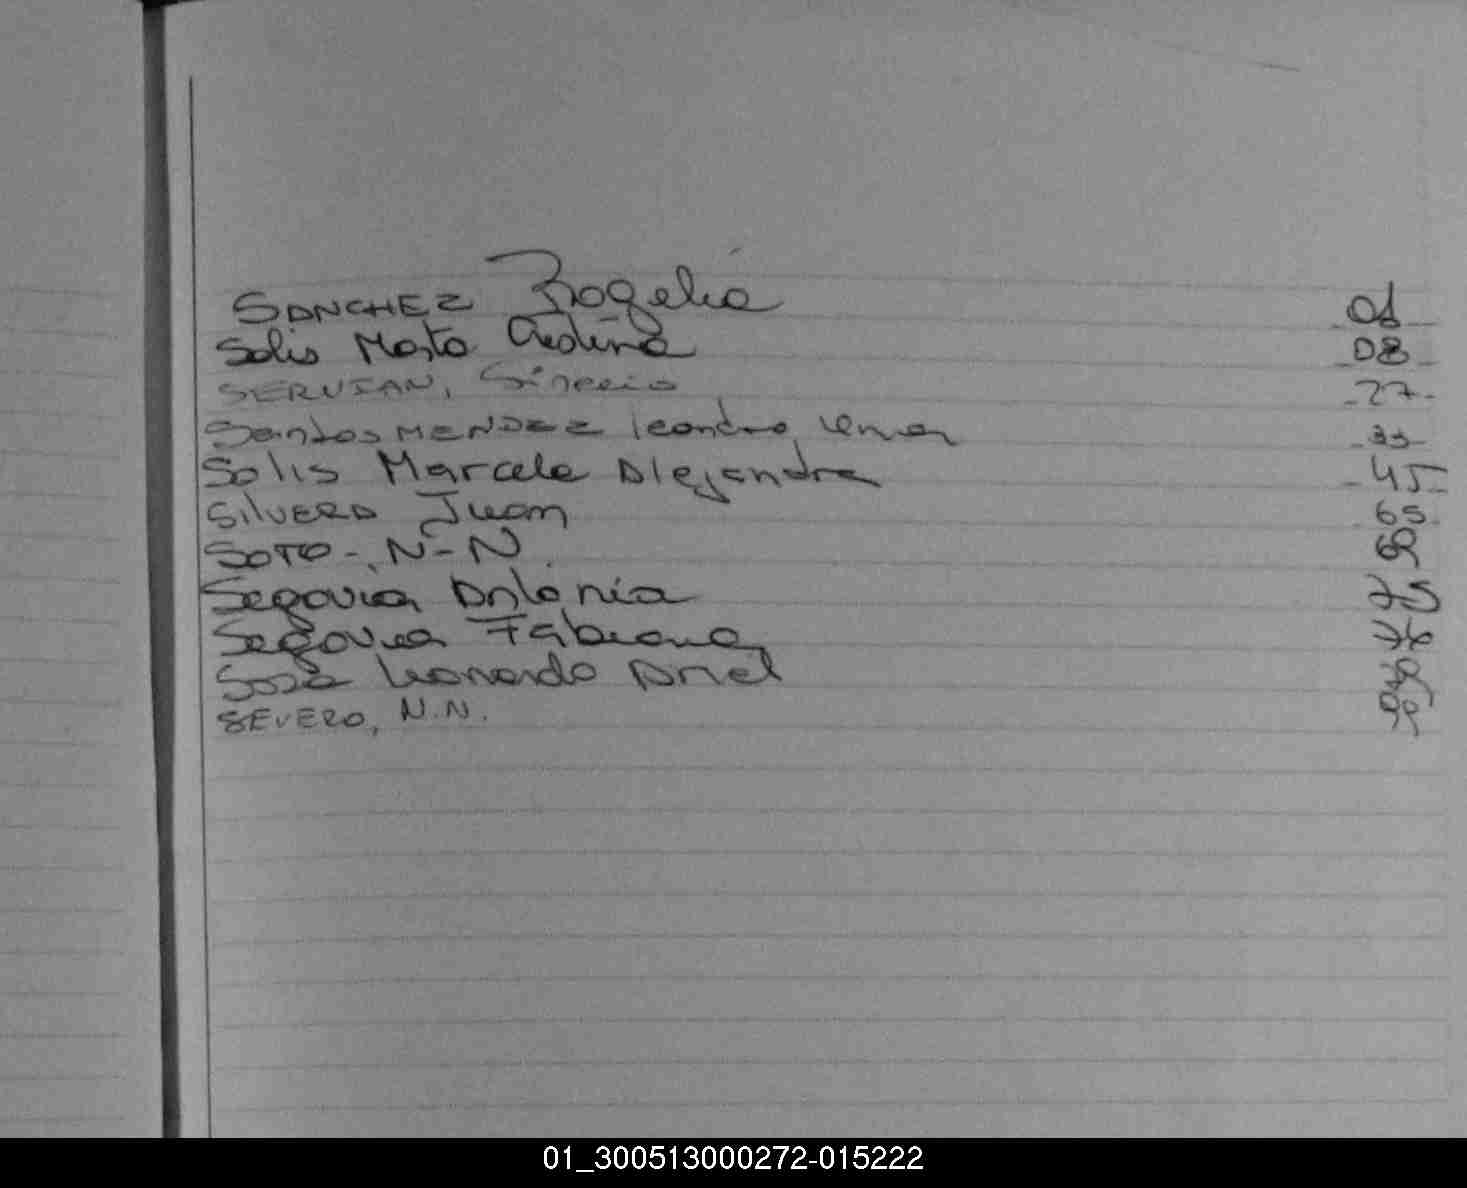 SANCHEZ Rogelia 01
Solis Marta Cristina 08
SERVIAN, 27
Santos MENDEZ leandro 33
Solis Marcela Alejandra 45
SILVERA Juan 65
SOTO - N-N 69
Segovia Antonia 75
Segovia Fabiana 76
Sosa Leonardo Ariel
SEVERO, N.N.
01_300513000272-015222